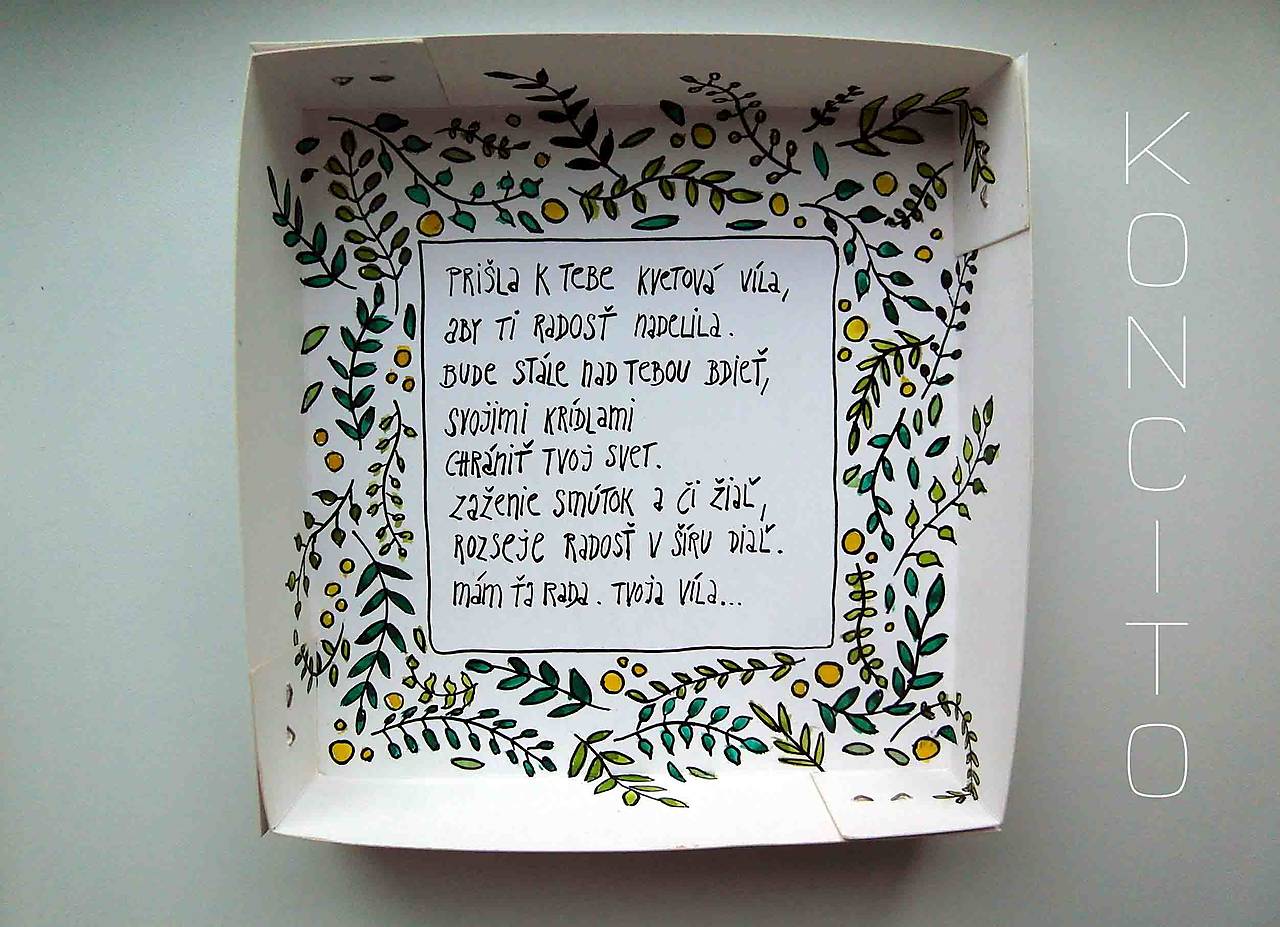 PRIŠLA K TEBE KVETOVÁ VÍLA,
ABY TI RADOSŤ NADELILA.
BUDE STÁLE NAD TEBOU BDIEŤ,
SVOJIMI KRÍDLAMI
CHRÁNIŤ TVOJ SVET.
ZAŽENIE SMÚTOK A ČI ŽIAĽ,
ROZSEJE RADOSŤ V ŠÍRU DIAĽ.
MÁM ŤA RADA. TVOJA VÍLA...
KONCITO